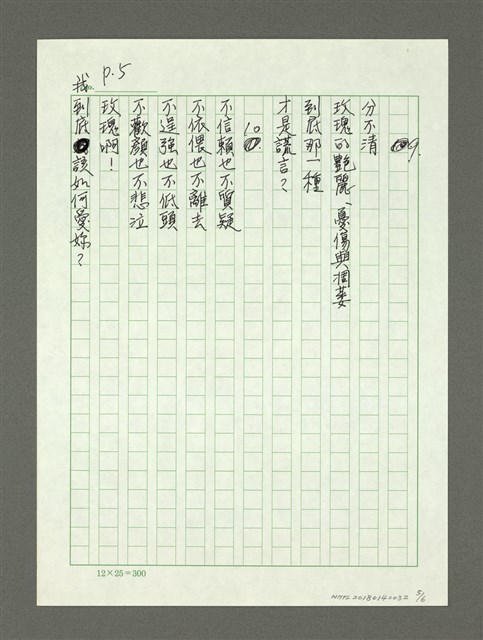 P.5
9.
分不清
玫瑰的艷麗、憂傷與凋萎
到底那一種
才是謊言？
10.
不信賴也不質疑
不依偎也不離去
不逞強也不低頭
不歡顏也不悲泣
玫瑰啊！
我到底該如何愛妳？
12×25=300
NMTL20180140032 5/6